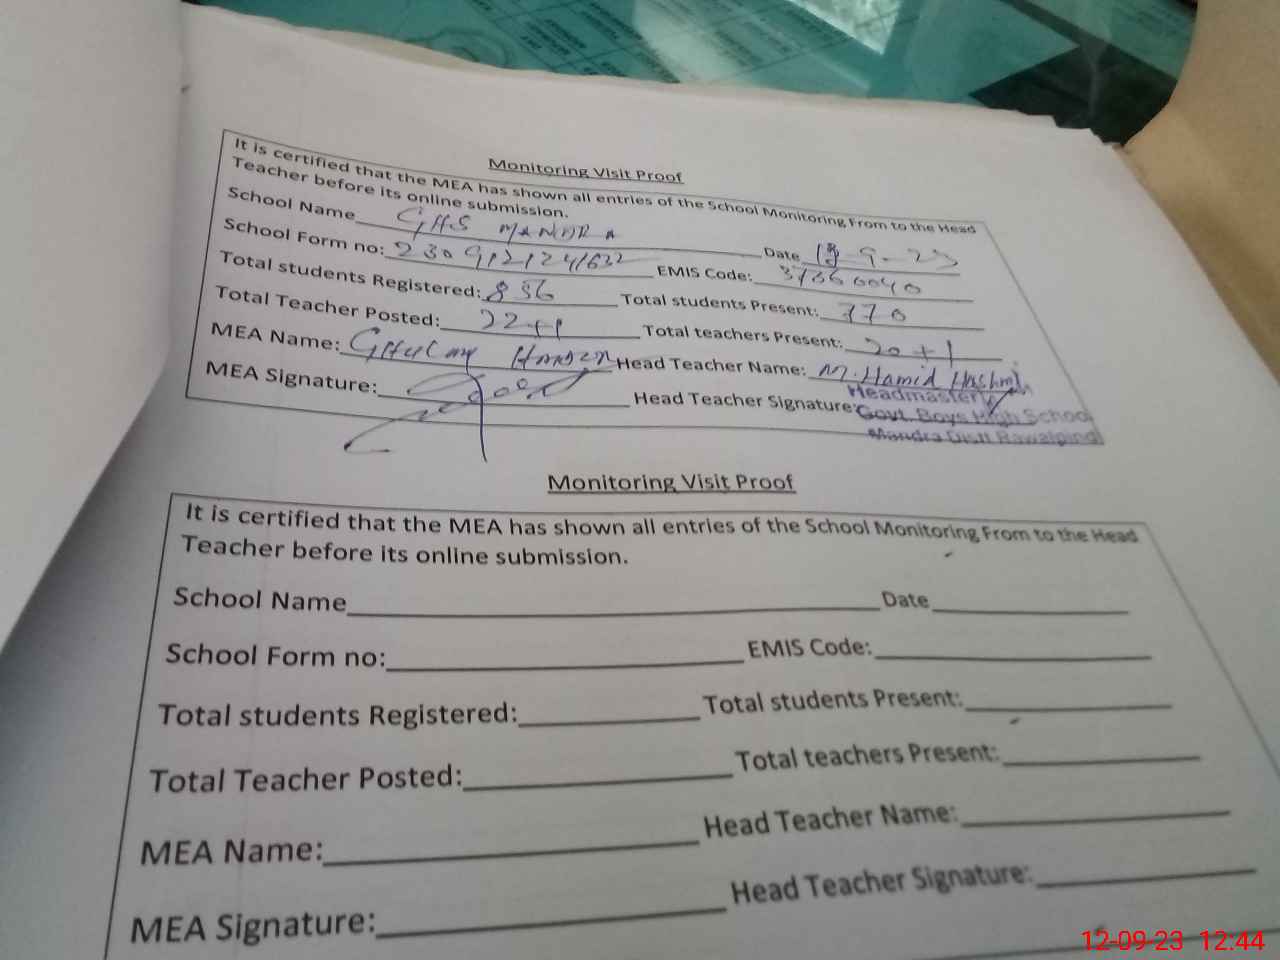 Monitoring Visit Proof
It is certified that the MEA has shown all entries of the School Monitoring From to the Head
Teacher before its online submission.
School Name GHS MANDRA Date -9-23
School Form no: EMIS Code:
Total students Registered: 836 Total students Present: 770
Total Teacher Posted: 22+1 Total teachers Present: 20+1
MEA Name: Head Teacher Name: M. Hamid Hashmi
MEA Signature: Head Teacher Signature:
Headmaster
Govt. Boys High School
Mandra Distt Rawalpindi
Monitoring Visit Proof
It is certified that the MEA has shown all entries of the School Monitoring From to the Head
Teacher before its online submission.
School Name Date
School Form no: EMIS Code:
Total students Registered: Total students Present:
Total Teacher Posted: Total teachers Present:
MEA Name: Head Teacher Name:
MEA Signature: Head Teacher Signature:
12-09-23 12:44